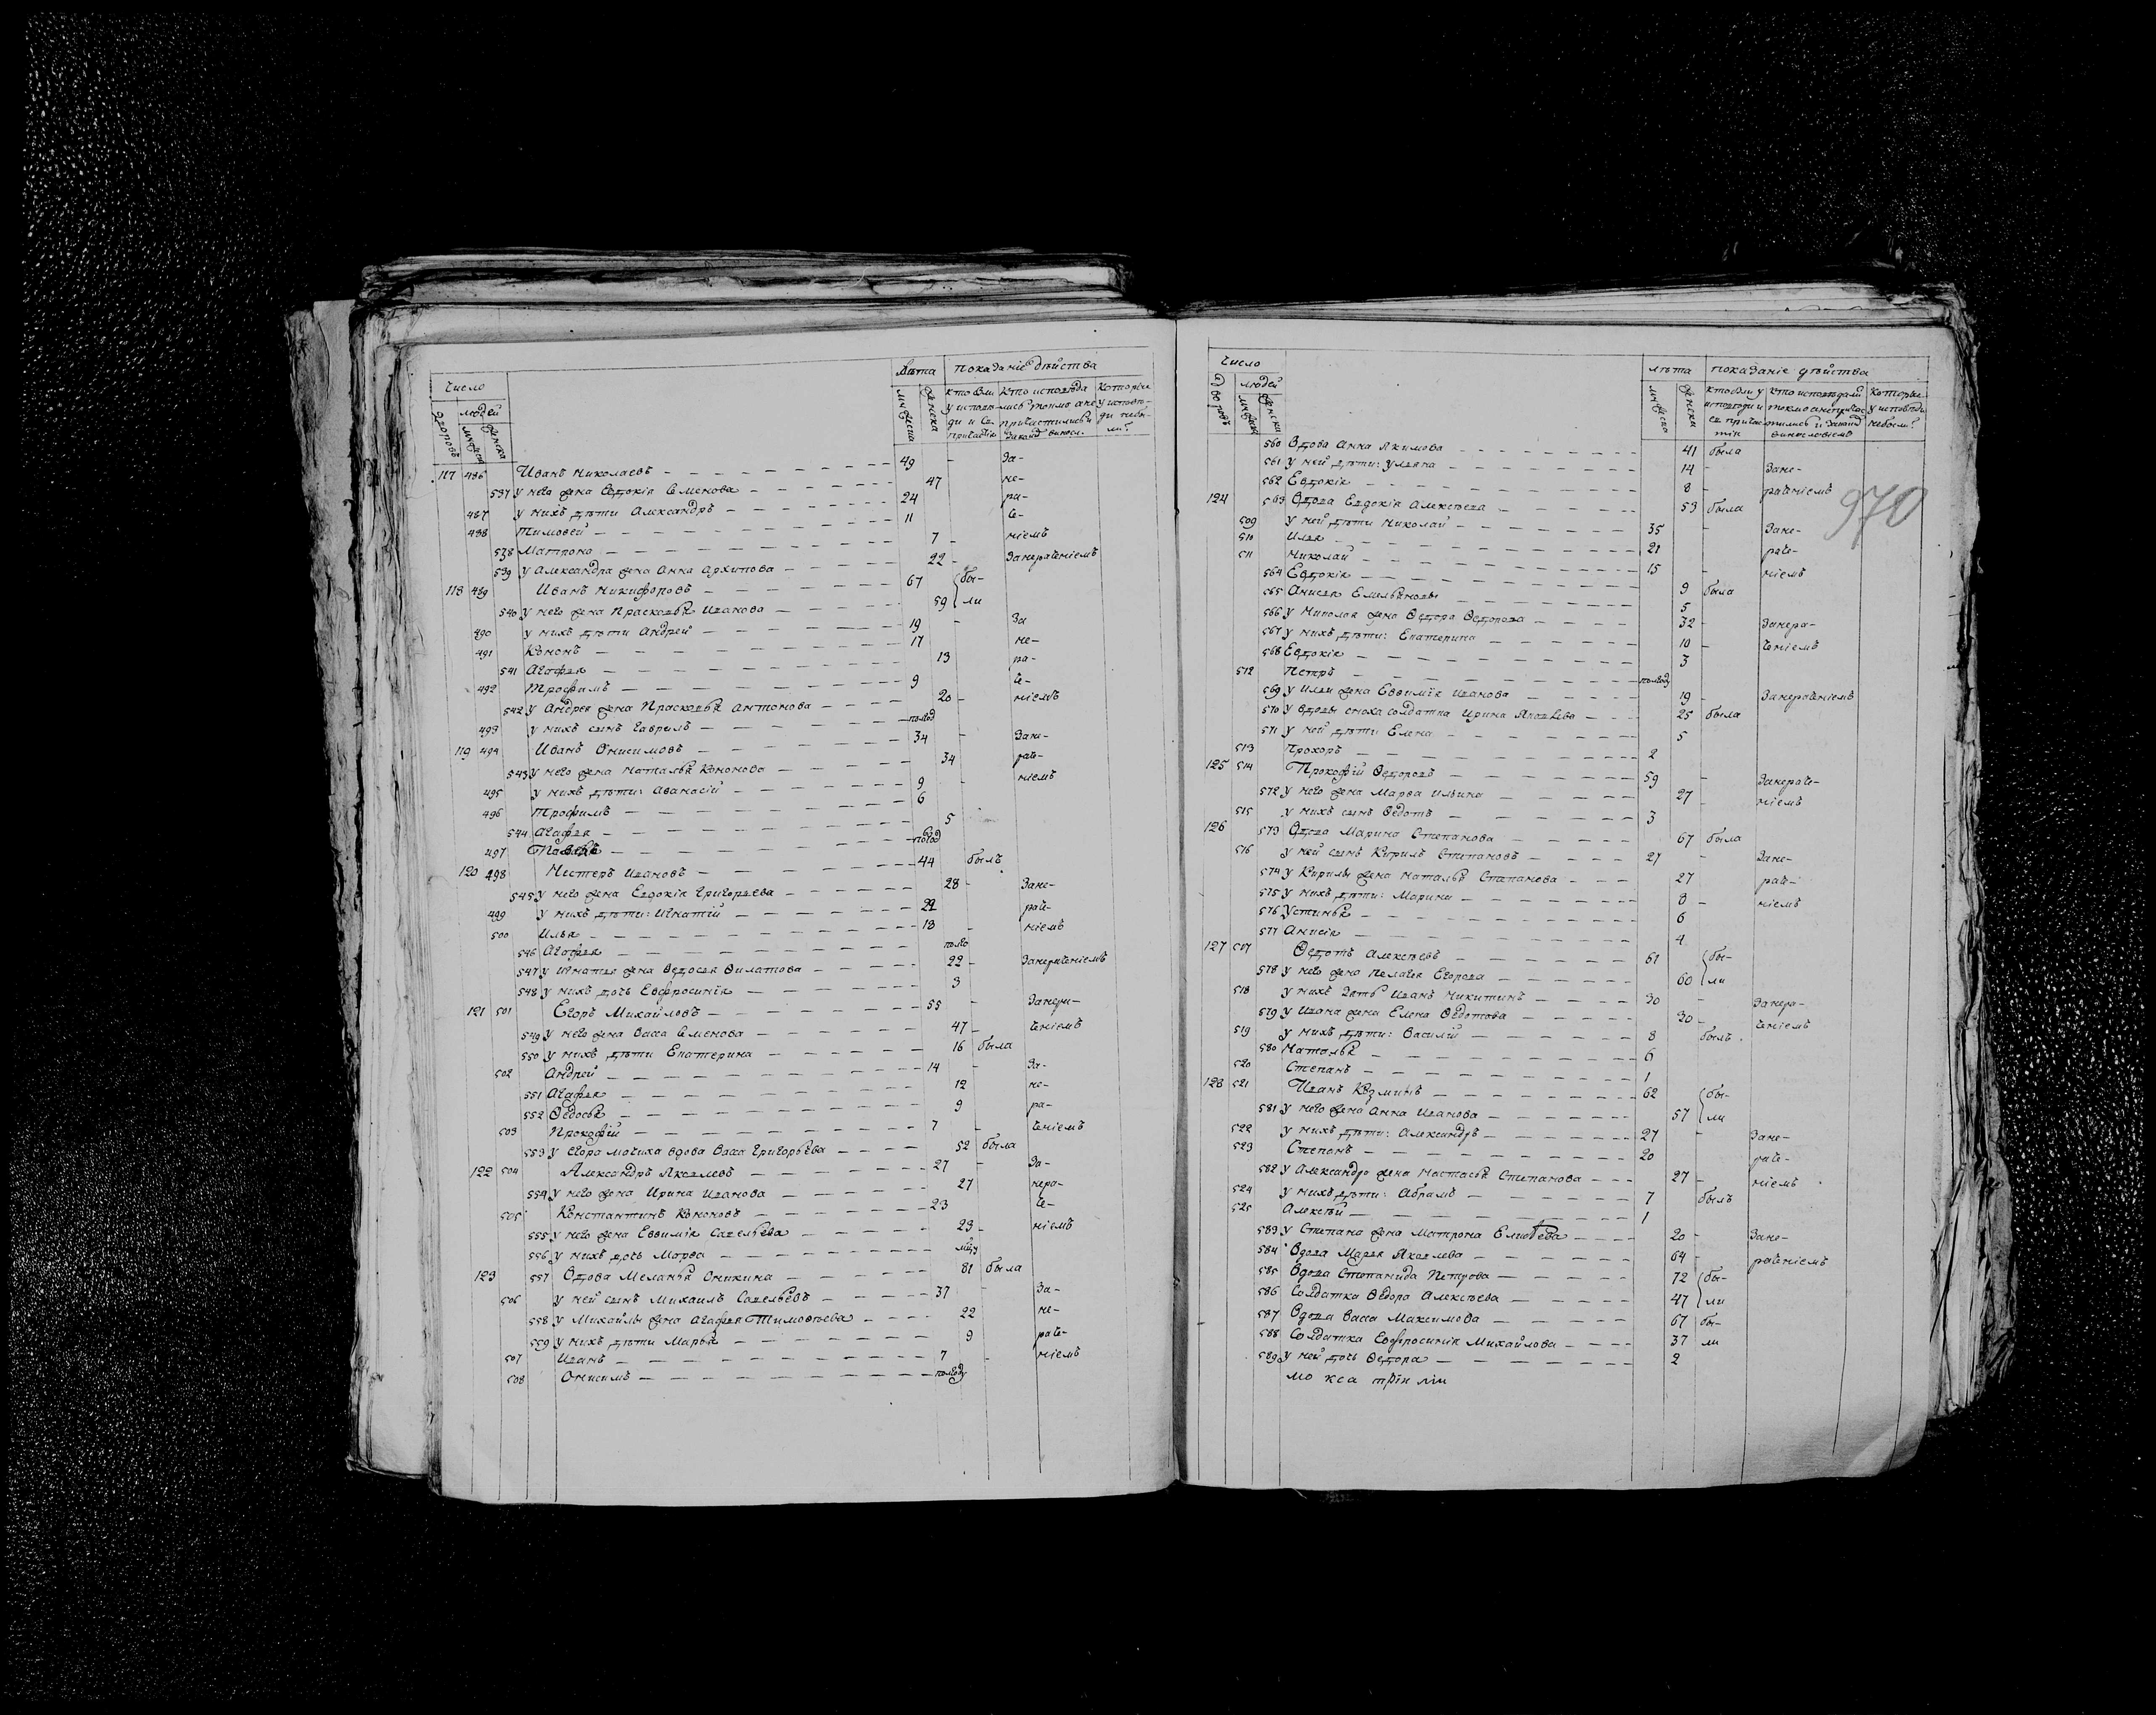 Число
Лѣта показанiе дѣйства
дворовъ
людей
мужеска
женска
мужеска
женска
кто были у исповѣди и св. причастiя
кто исповѣдались токмо а не причастились и закакой винос.
Которые у исповѣди небыли?
117 486 Иванъ Николаевъ 49 - За-
537 у него жена Евдокiя Семенова 47 не-
487 у нихъ дѣти Александръ 24 ра-
488 Тимофей 11 че-
538 Матрона 7 - нiемъ
539 у Александра жена Анна Архипова 22 - Занераченiемъ
118 489 Иванъ Никифоровъ 67 бы-
540 у него жена Прасковья Иванова 59 ли
490 у нихъ дѣти Андрей 19 - За
491 Кононъ 17 не-
541 Агафья 13 ра-
492 Трофимъ 9 че-
542 у Андрея жена Прасковья Антонова 20 - нiемъ
493 у нихъ сынъ Гаврилъ полгод
119 494 Иванъ Онисимовъ 34 - Зане-
543 у него жена Наталья Кононова 34 раче-
495 у нихъ дѣти: Афанасiй 9 - нiемъ
496 Трофимъ 6
544 Агафья 5
497 полгод
120 498 Нестеръ Ивановъ 44 былъ
545 у него жена Евдокiя Григорьева 28 - Зане-
499 у нихъ дѣти: Игнатiй 22 раче-
500 Илья 13 - нiемъ
546 Агафья полго
547 у Игнатья жена Федосья Филатова 22 - Занераченiемъ
548 у нихъ дочь Евфросинiя 3
121 501 Егоръ Михайловъ 55 - Занера-
549 у него жена Васса Семенова 47 - ченiемъ
550 у нихъ дѣти Екатерина 16 была
502 Андрей 14 - За-
551 Агафья 12 не-
552 Федосья 9 ра-
503 Прокофiй 7 - ченiемъ
553 у Егора мочиха вдова Васса Григорьева 52 была
122 504 Александръ Яковлевъ 27 - За-
554 у него жена Ирина Иванова 27 нера-
505 Константинъ Кононовъ 23 че-
555 у него жена Евфимiя Савельева 23 - нiемъ
556 у нихъ дочь Марфа
123 557 Вдова Меланья Оникина 81 была
506 у ней сынъ Михаилъ Савельевъ 37 - За-
558 у Михайлы жена Агафья Тимофѣева 22 не-
559 у нихъ дѣти Марья 9 раче-
507 Иванъ 7 - нiемъ
508 Онисимъ полгоду
Число
лѣта показанiе дѣйства
дворовъ
людей
мужеска
женска
мужеска
женска
кто были у исповѣди и св. причастiя
кто исповѣдали токмо анепричастились и закакимъ винословiемъ
Которые у исповѣди небыли?
970
560 Вдова Анна Якимова 41 была
561 у ней дѣти: Ульяна 14 - Зане-
562 Евдокiя 8 - раченiемъ
124 563 Вдова Евдокiя Алексѣева 53 была
509 у ней дѣти Николай 35 - Зане-
510 Илья 21 раче-
511 Николай 15 - нiемъ
564 Евдокiя 9 была
565 Анисья Емельянова 5
566 у Николая жена Федора Федорова 32 - Занера-
567 у нихъ дѣти: Екатерина 10 - ченiемъ
568 Евдокiя 3
512 Петръ полгоду
569 у Ильи жена Евфимiя Иванова 19 - Занераченiемъ
570 у вдовы сноха солдатка Ирина Яковлева 25 была
571 у ней дѣти Елена 5
513 Прохоръ 2
125 514 Прокофiй Федоровъ 59 - Занераче-
572 у него жена Марфа Ильина 27 - нiемъ
515 у нихъ сынъ Федотъ 3
126 573 Вдова Марина Степанова 67 была
516 у ней сынъ Кирилъ Степановъ 27 - Зане-
574 у Кирилы жена Наталья Степанова 27 раче-
575 у нихъ дѣти: Марина 8 - нiемъ
576 Устинья 6
577 Анисiя 4
127 517 Федотъ Алексѣевъ 61 бы-
578 у него жена Пелагея Егорова 60 ли
518 у нихъ зять Иванъ Никитинъ 30 - Занера-
579 у Ивана жена Елена Федотова 30 - ченiемъ
519 у нихъ дѣти: Василiй 8 былъ
580 Наталья 6
520 Степанъ 1
128 521 Иванъ Козминъ 62 бы-
581 у него жена Анна Иванова 57 ли
522 у нихъ дѣти: Александръ 27 - Зане-
523 Степанъ 20 раче-
582 у Александра жена Настасья Степанова 27 - нiемъ
524 у нихъ дѣти: Абрамъ 7 былъ
525 Алексѣй 1
583 у Степана жена Матрона 20 - Зане-
584 Вдова Марья Яковлева 64 - раченiемъ
585 Вдова Степанида Петрова 72 бы-
586 Солдатка Федора Алексѣева 47 ли
587 Вдова Васса Максимова 67 бы-
588 Солдатка Евфросинiя Михайлова 37 ли
589 у ней дочь Федора 2